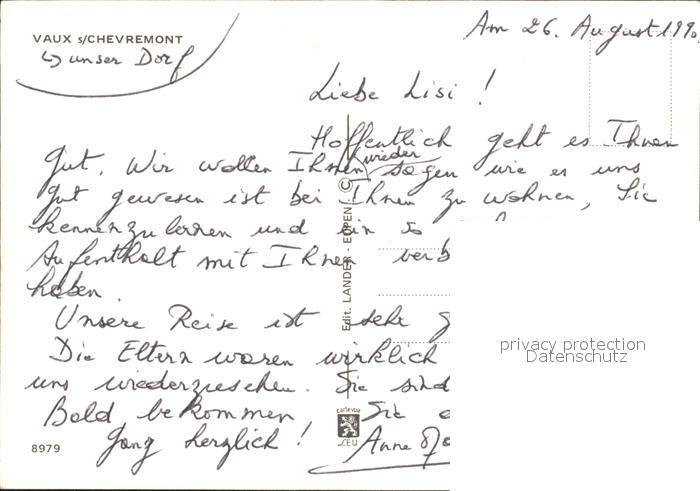 VAUX s/CHEVREMONT
↳ unser Dorf
Am 26. August 1990.
Liebe Lisi !
Hoffentlich geht es Ihnen
gut. Wir wollen Ihnen wieder sagen wie es uns
gut gewesen ist bei Ihnen zu wohnen, Sie
kennenzulernen und ein so
Aufenthalt mit Ihnen verb
haben.
Unsere Reise ist sehr g
Die Eltern waren wirklich
uns wiederzusehen. Sie sind
Bald bekommen Sie
Ganz herzlich !
Anne
Edit. LANDER - EUPEN ©
carte vue
LEU
8979
privacy protection
Datenschutz